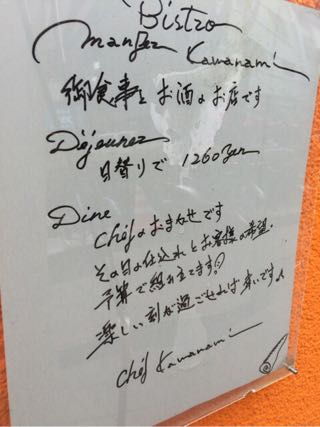 Bistro
Manger
Kawanami
御食事とお酒のお店です
Déjeuner
日替りで 1260yen
Dine
chefのおまかせです
その日の仕入れとお客様の希望・
予算で組み立てます!
楽しい刻が過ごせれば幸いです♪
chef Kawanami